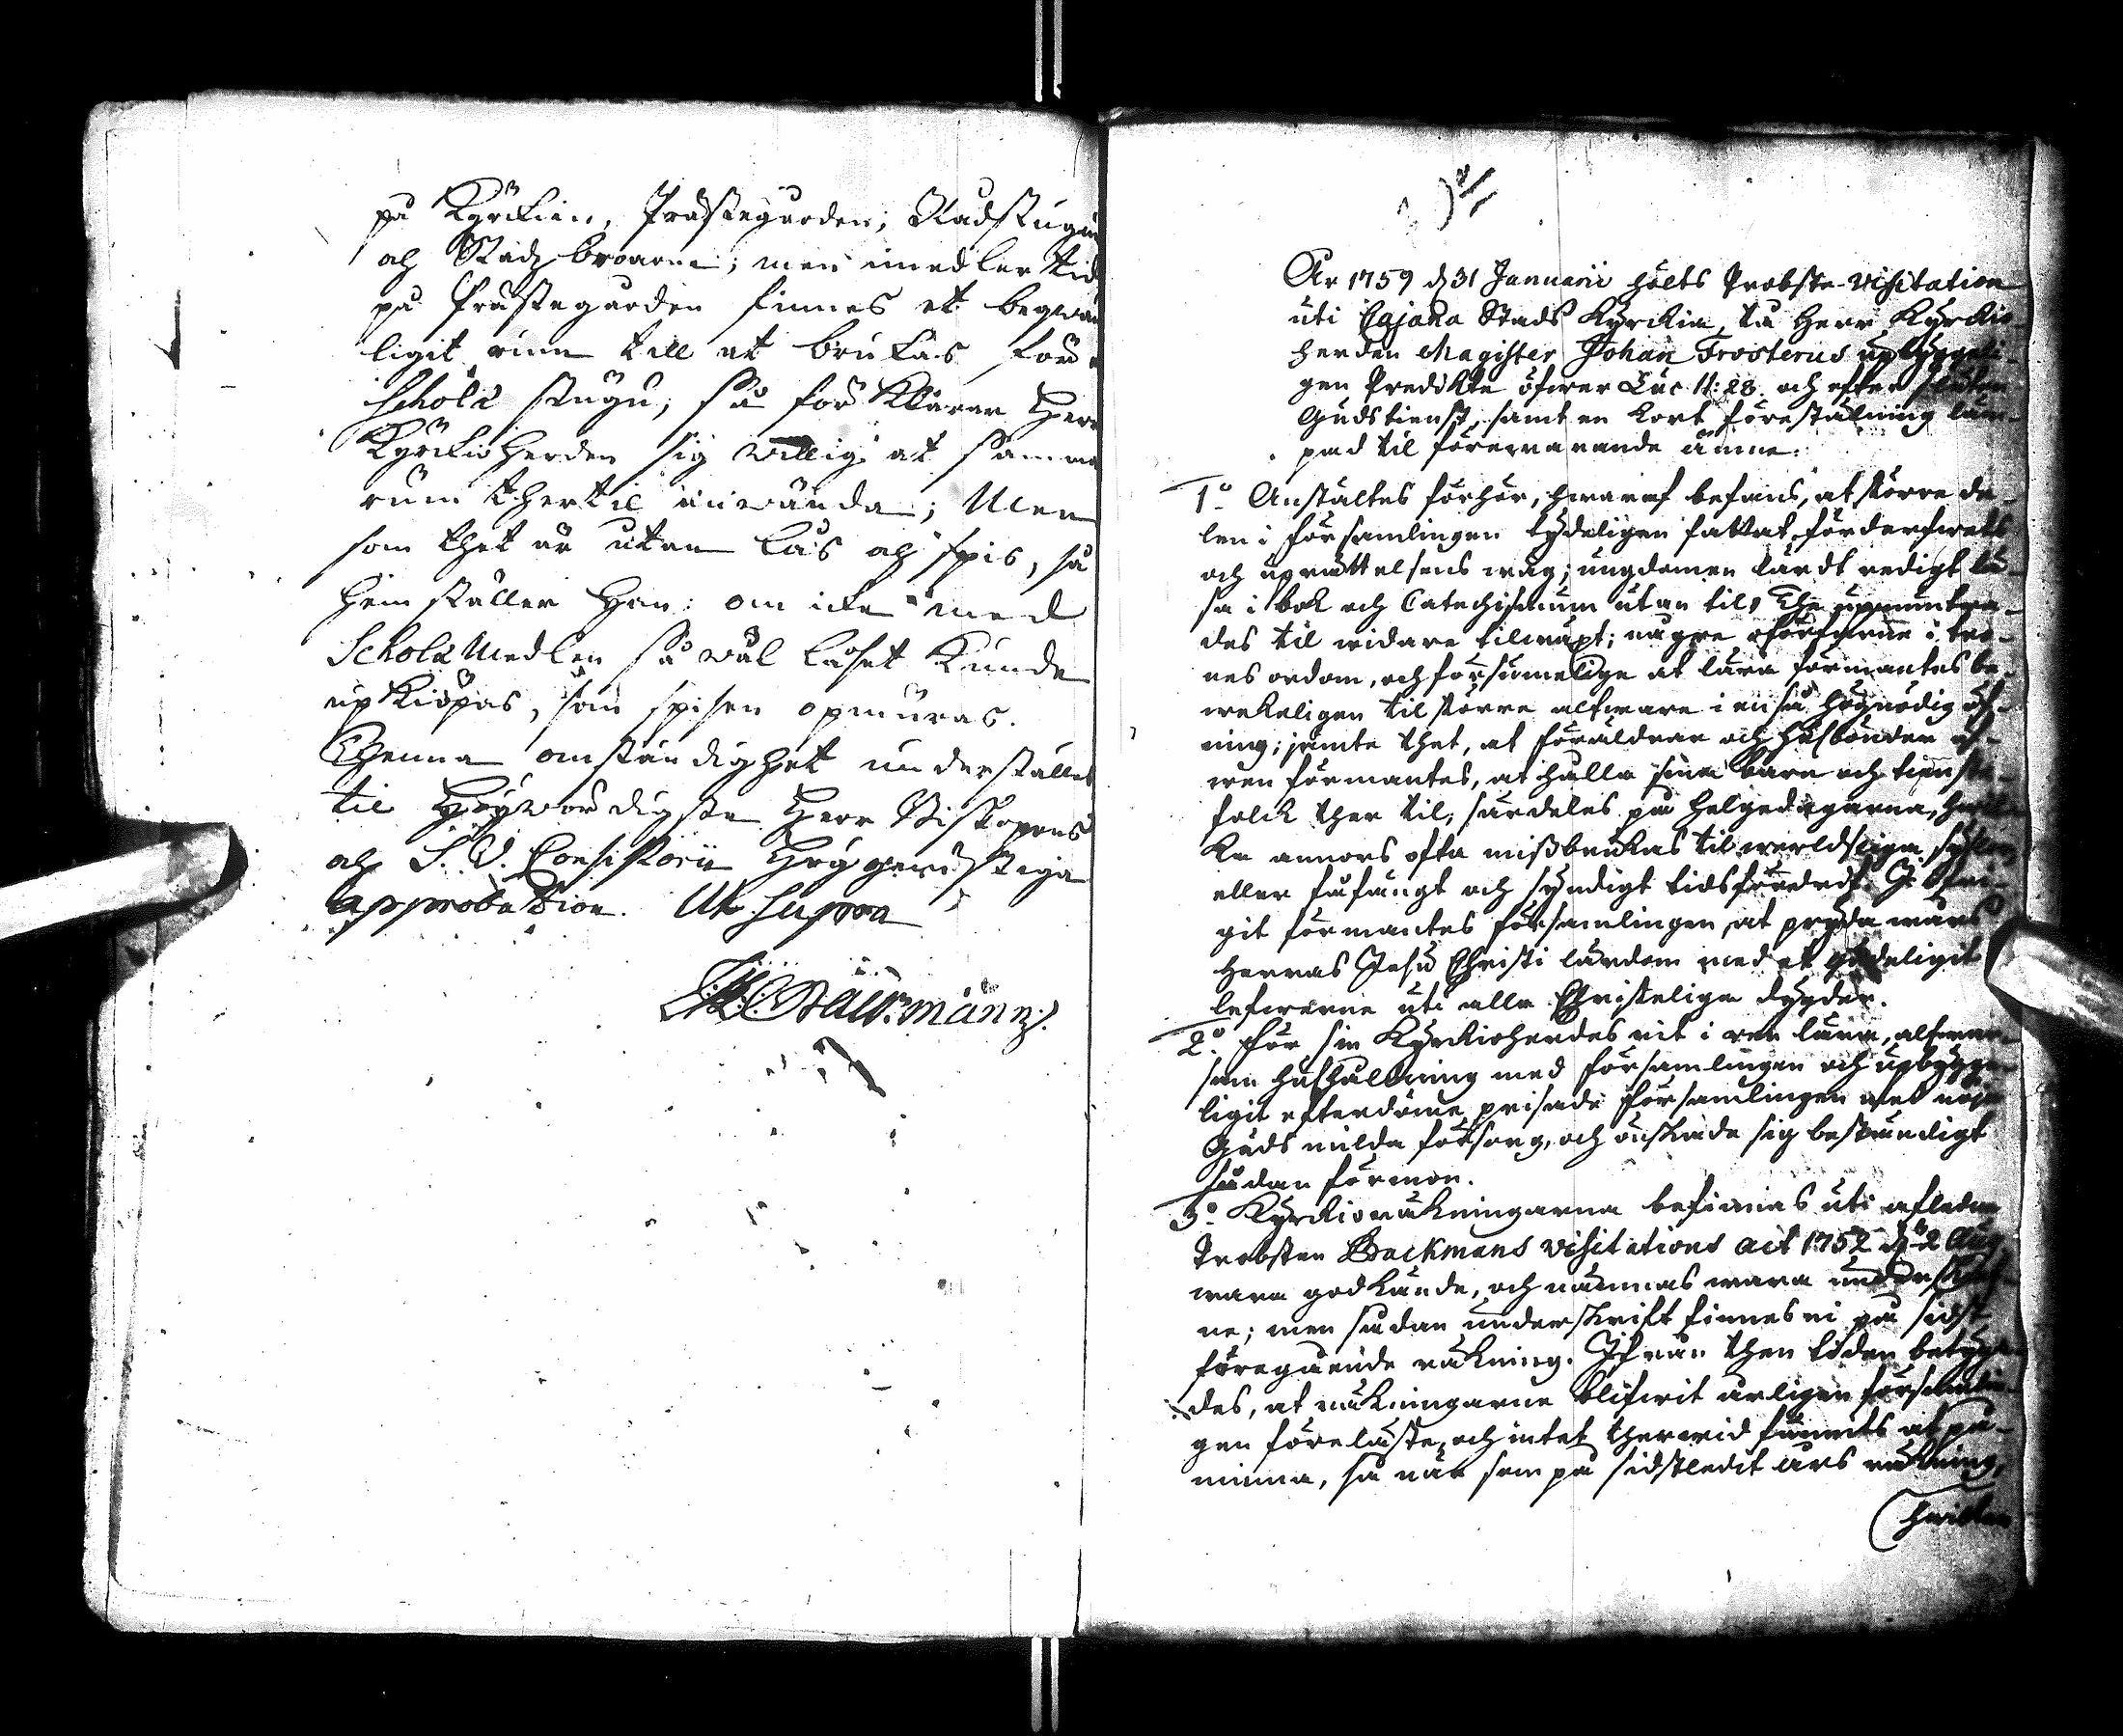 på Kyrckian, Prästegården; Rådstugun
och Stads broarne; men imedler tid
på Prästegården finnes et beqwäm
ligit rum till at brukas för
Schola stugu, så förklarar Herr
Kyrckioherden sig willig at samma
rum ther til använda; Men
som thet är utan lås och spis, så
hemställer Han: om icke med
Schola Medlen så wäl låset kunde
upkiöpas, som spisen opmuras.
Thenna omständighet underställes
til Högwördigste Herr Biskopens
och S. V. Consistorii Höggunstiga
approbation. Ut supra

År 1759 d 31 Januarii hölts Probste-Visitation
uti Cajana Stads Kyrckia, tå Herr Kyrckio-
herden Magister Johan Frosterus upbyggeli-
gen Predikte öfwer Luc 11:28. och efter sluten
Gudstienst, samt en kort föreställning läm-
pad til förewarande ämne:
1o Anstältes förhör, hwaraf befans, at större de-
len i församlingen tydeligen fattat förderfwets
och uprättelsens wäg; ungdomen lärdt redigt lä-
sa i bok och Catechismum utan til, The upmuntra-
des til widare tilwäxt; någre oförfarne i tro-
nes ordom, och försumelige at lära förmantes be-
wekeligen til större alfware i en så högnödig öf-
ning; jämte thet, at föräldrar och husbönder äf-
wen förmantes, at hålla sina barn och tiensta-
folck ther til, särdeles på helgedagarna, hwil-
ka annors ofta missbrukas til werldsliga syslor,
eller fåfängt och syndigt tidsfördrif. I öfri-
git förmantes församlingen, at pryda wårs
Herras Jesu Christi lärdom med et gudeligit
lefwerne uti alla Christeliga dygder.
2o. För sin Kyrckioherdes nit i ren lära, alfwar-
sam hushållning med församlingen och upbygge-
ligit efterdöme prisade församlingen med nöje
Guds milda försorg, och önskade sig beständigt
sådan förmon.
3o. Kyrckioräkningarna befinnas uti aflidne
Probsten Backmans Visitations act 1752 d 2 Aug.
wara godkände, och nämnas wara underskref-
ne; men sådan underskrift finnes ei på sidst
föregående räkning. Ifrån then tiden betyga-
des, at räkningarne blifwit årligen församlin-
gen föreläste, och intet therwid funnits at på-
minna, så när som på sidstledit års räkning,
hwilken